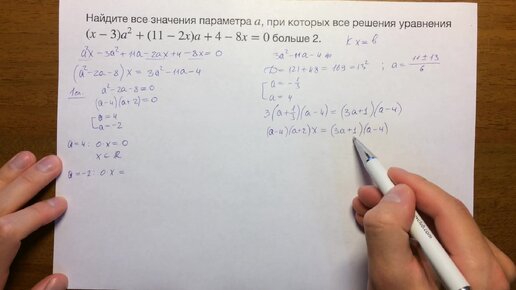 Найдите все значения параметра a, при которых все решения уравнения
(x − 3)a² + (11 − 2x)a + 4 − 8x = 0 больше 2.
kx = b
a²x − 3a² + 11a − 2ax + 4 − 8x = 0
(a² − 2a − 8)x = 3a² − 11a − 4
1сл. a² − 2a − 8 = 0
(a − 4)(a + 2) = 0
[a = 4
a = −2
a = 4: 0·x = 0
x ∈ ℝ
a = −2: 0·x =
3a² − 11a − 4 = 0
D = 121 + 48 = 169 = 13² ; a = (11 ± 13)/6
[a = −1/3
a = 4
3(a + 1/3)(a − 4) = (3a + 1)(a − 4)
(a − 4)(a + 2)x = (3a + 1)(a − 4)